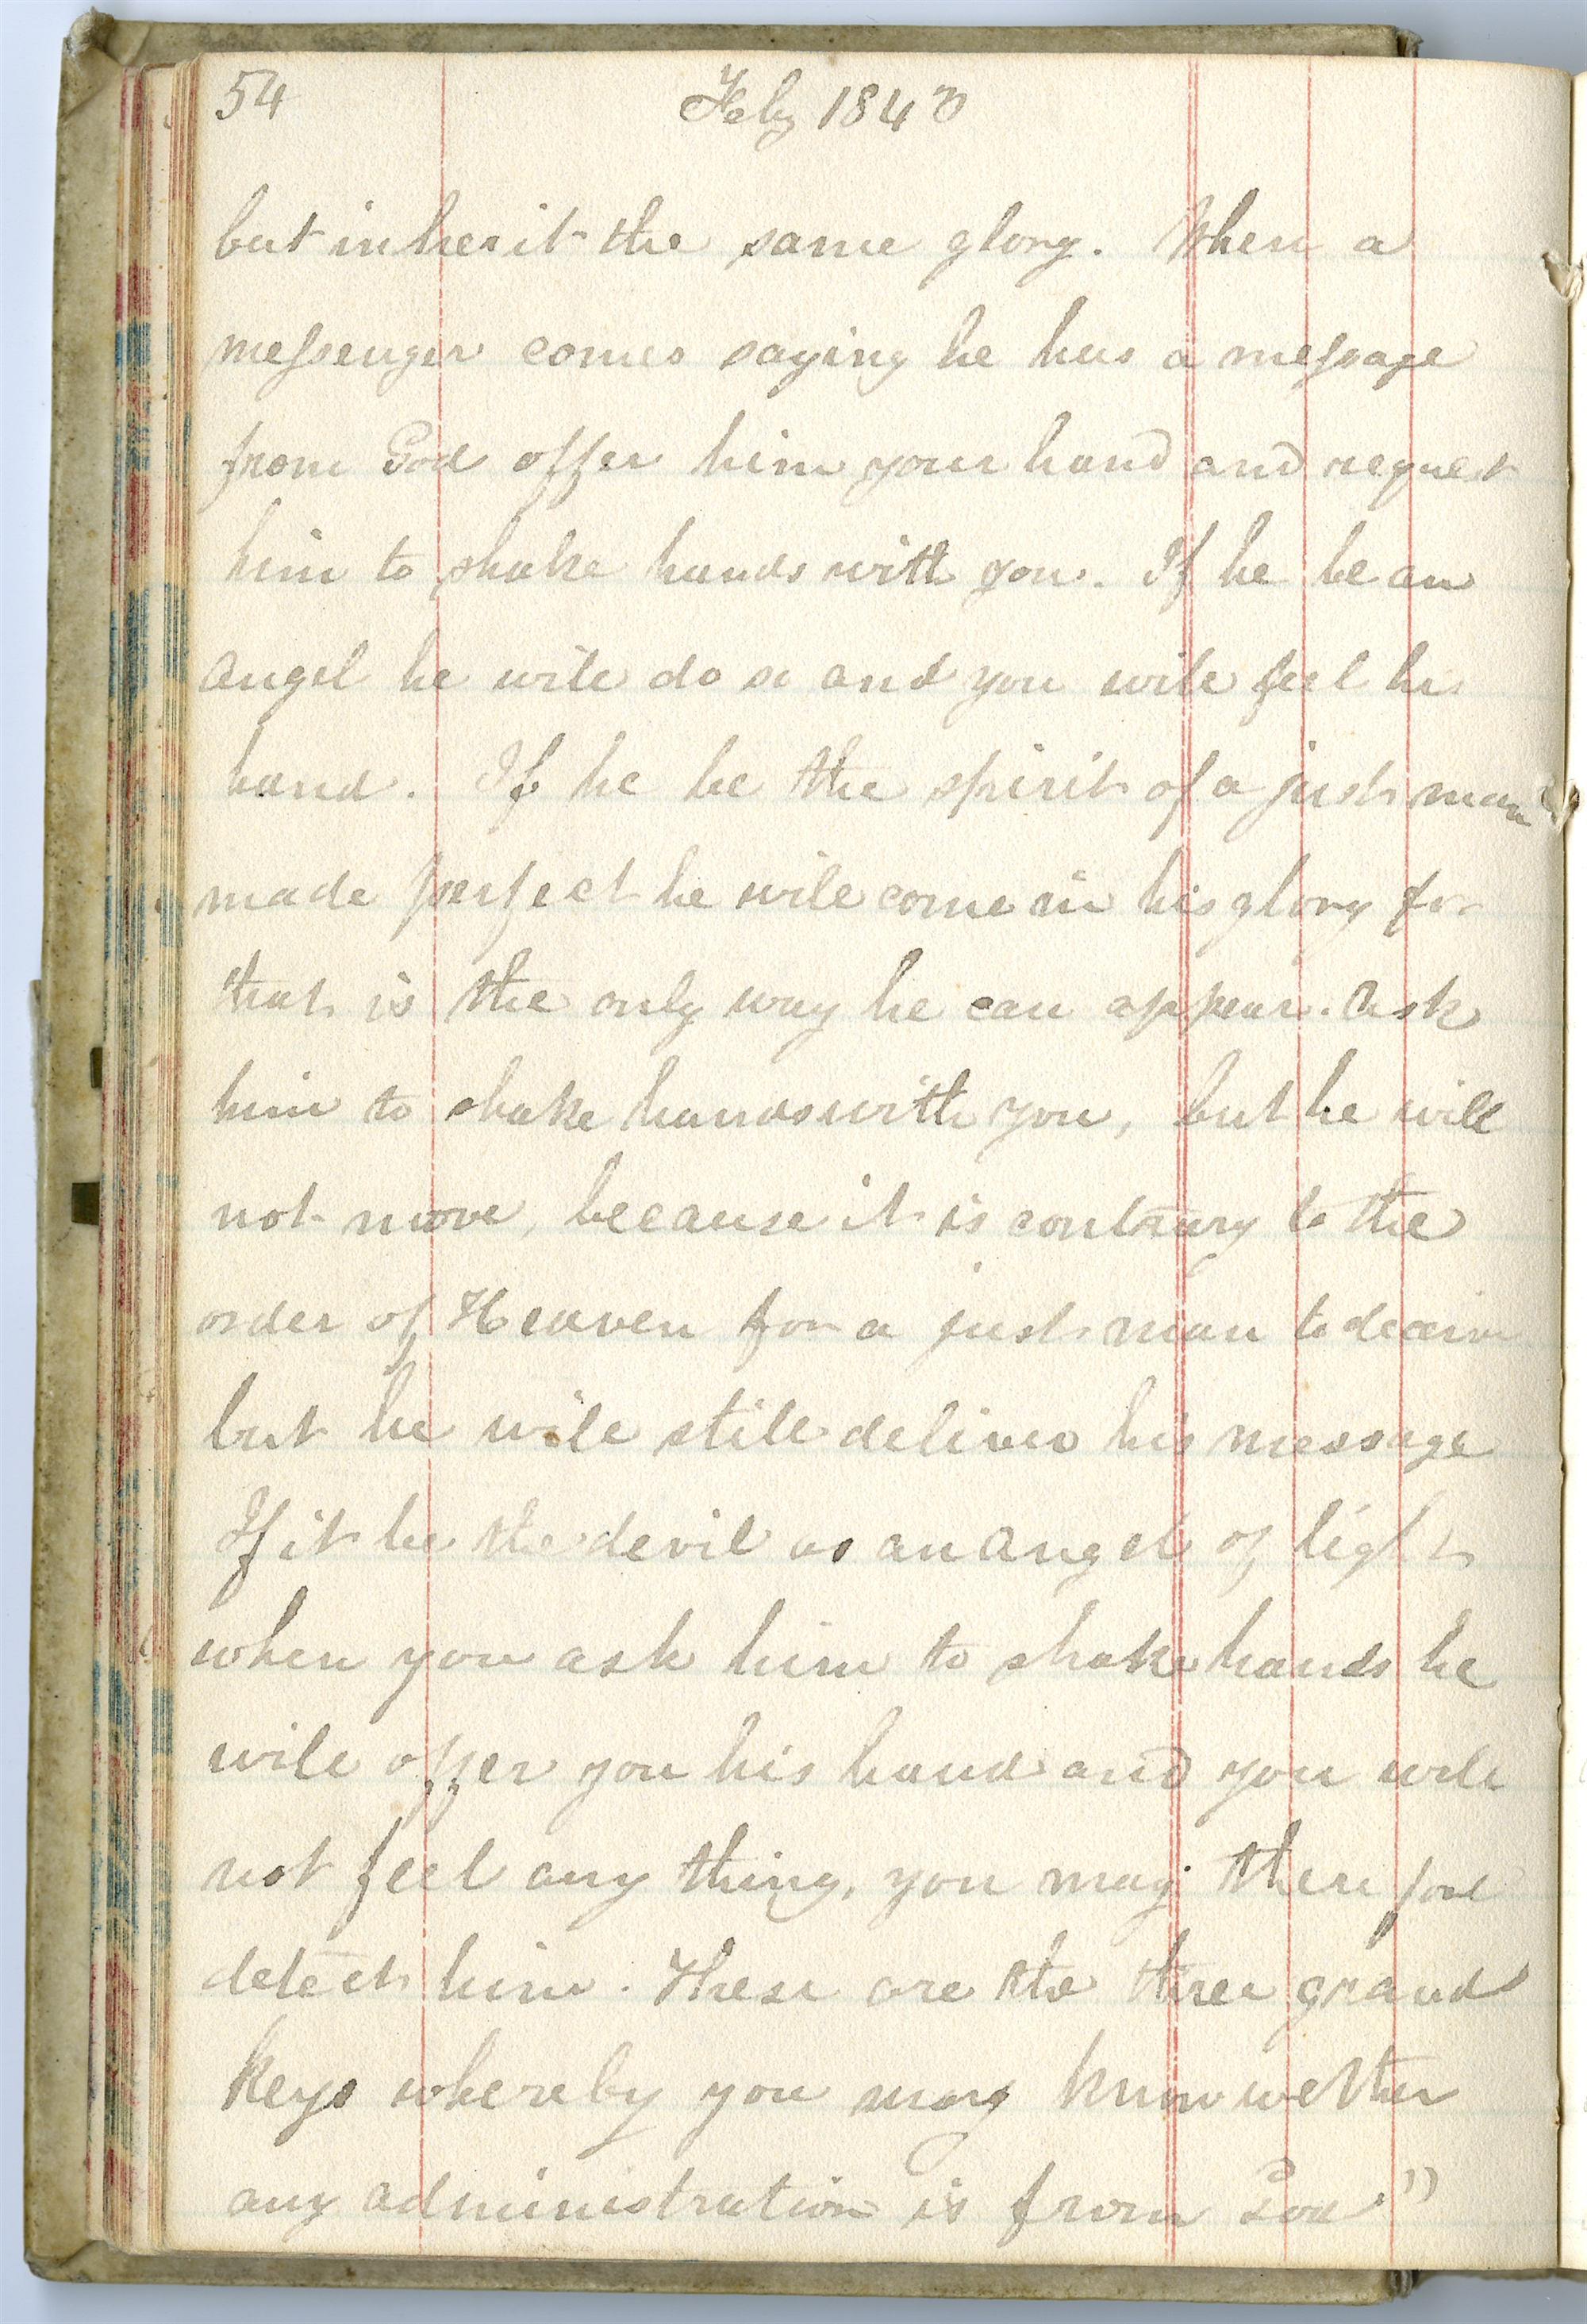 54 Feby 1843
but inherit the same glory. When a
messenger comes saying he has a message
from God offer him your hand and request
him to shake hands with you. If he be an
angel he will do so and you will feel his
hand. If he be the spirit of a just man
made perfect he will come in his glory for
that is the only way he can appear. Ask
him to shake hands with you, but he will
not move, because it is contrary to the
order of Heaven for a just man to deceive
but he will still deliver his message
If it be the devil as an angel of light
when you ask him to shake hands he
will offer you his hand and you will
not feel any thing, you may therefore
detect him. These are the three grand
keys whereby you may know wether
any administration is from God."